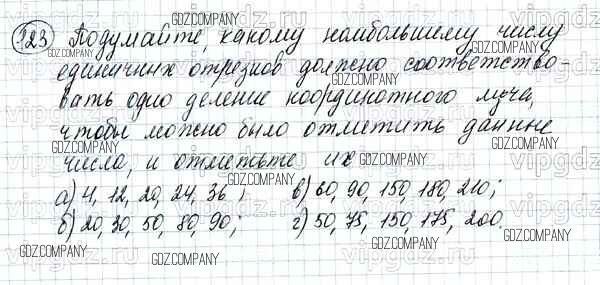 123 Подумайте, какому наибольшему числу
единичных отрезков должно соответство-
вать одно деление координатного луча,
чтобы можно было отметить данные
числа, и отметьте их
а) 4, 12, 20, 24, 36; в) 60, 90, 150, 180, 210;
б) 20, 30, 50, 80, 90; г) 50, 75, 150, 175, 200.